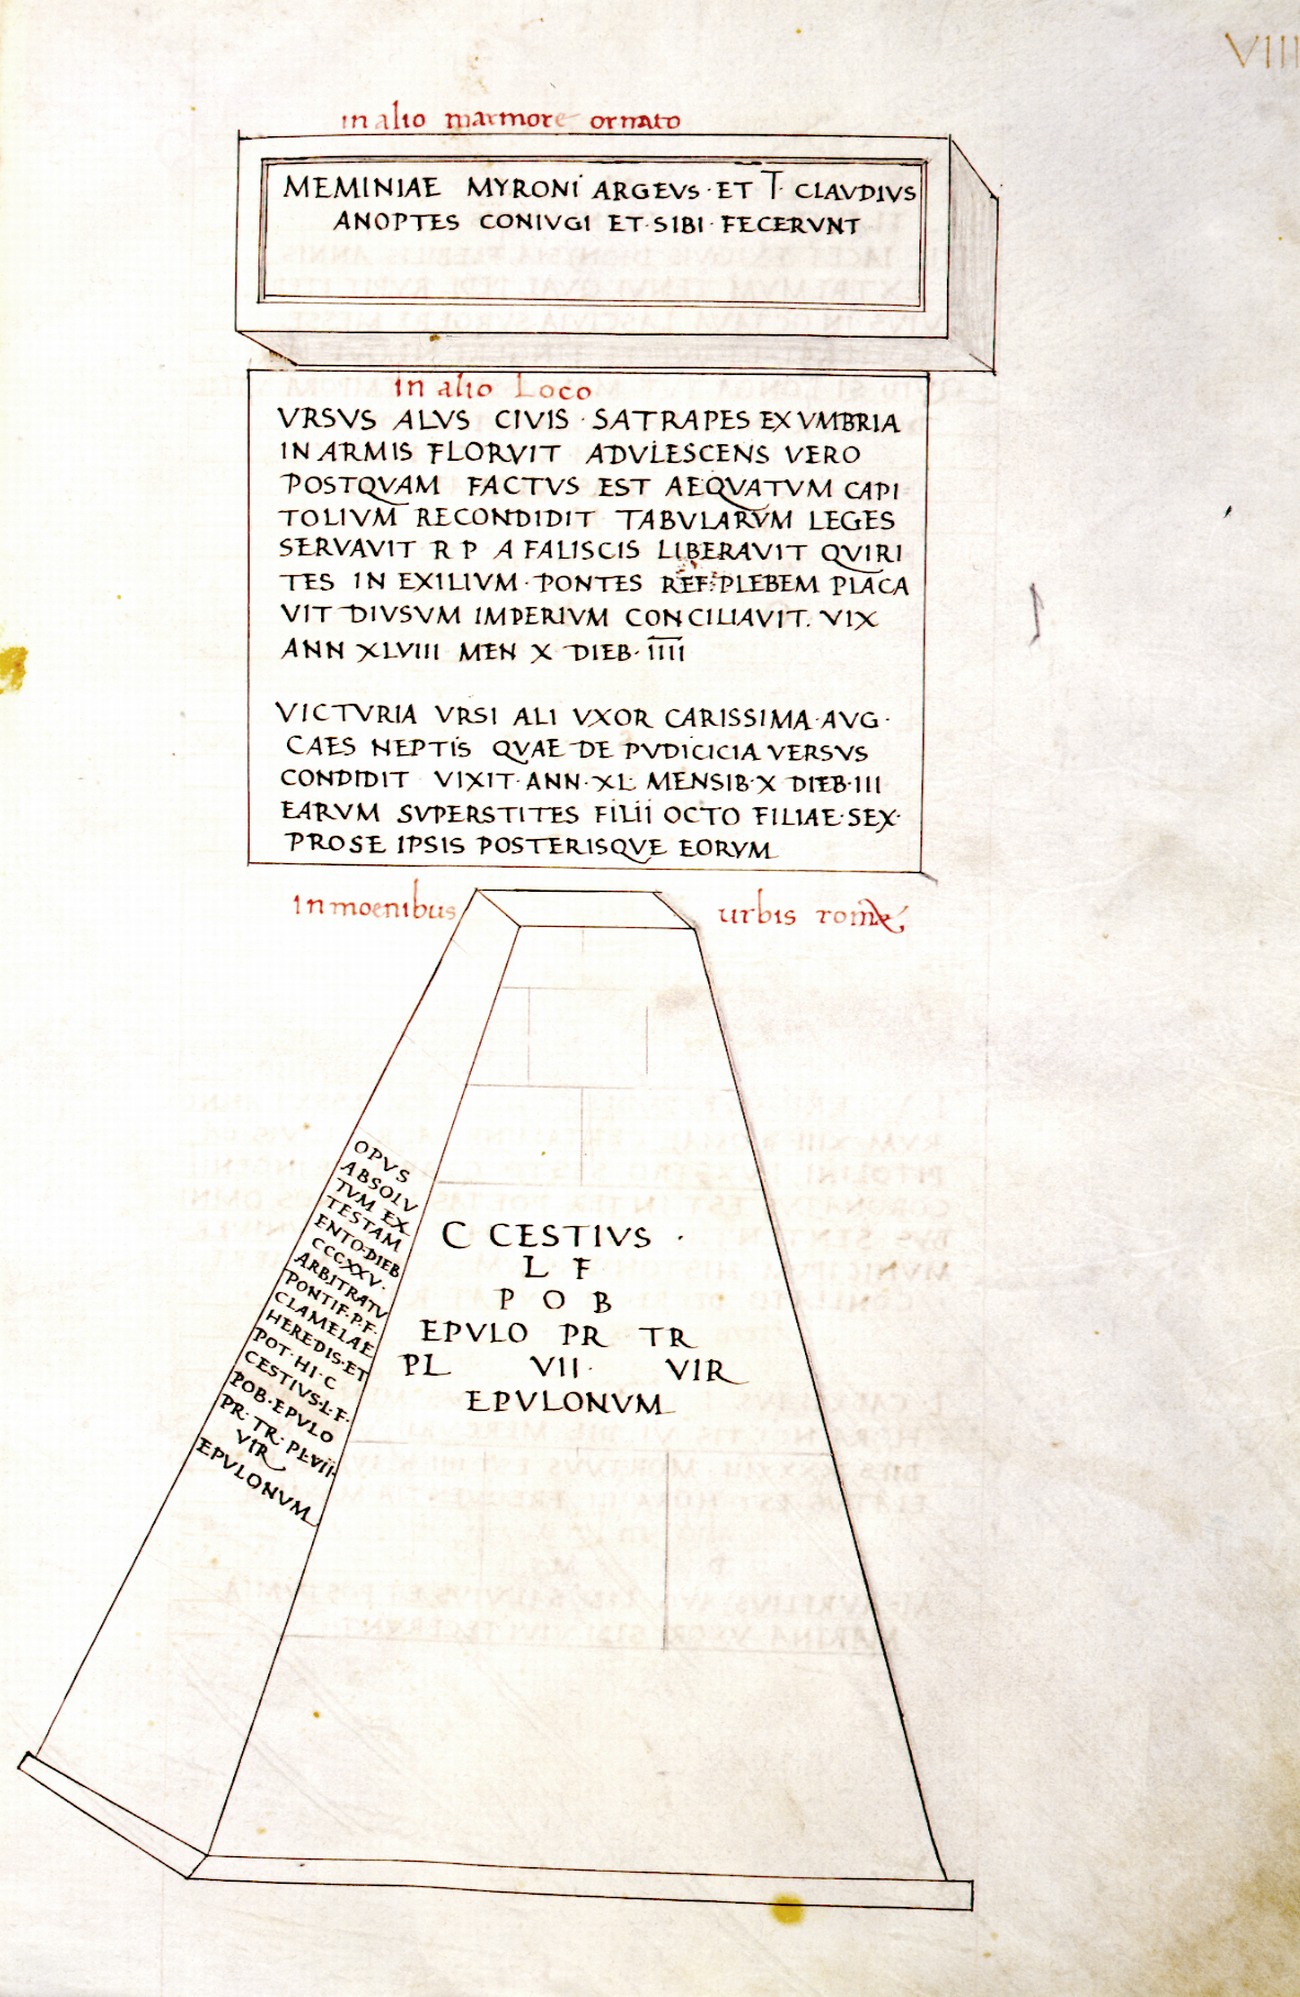 VIIII
in alio marmore ornato
MEMINIAE MYRONI ARGEVS · ET T · CLAVDIVS
ANOPTES CONIVGI ET · SIBI · FECERVNT
in alio Loco
VRSVS ALVS CIVIS · SATRAPES EX VMBRIA
IN ARMIS FLORVIT ADVLESCENS VERO
POSTQVAM FACTVS EST AEQVATVM CAPI
TOLIVM RECONDIDIT TABVLARVM LEGES
SERVAVIT R P A FALISCIS LIBERAVIT QVIRI
TES IN EXILIVM · PONTES REF: PLEBEM PLACA
VIT DIVSVM IMPERIVM CONCILIAVIT. VIX
ANN XLVIII MEN X DIEB · IIII
VICTVRIA VRSI ALI VXOR CARISSIMA · AVG ·
CAES NEPTIS QVAE DE PVDICICIA VERSVS
CONDIDIT VIXIT · ANN · XL · MENSIB · X DIEB · III
EARVM SVPERSTITES FILII OCTO FILIAE · SEX ·
PROSE IPSIS POSTERISQVE EORVM
in moenibus urbis romæ
OPVS
ABSOLV
TVM EX
TESTAM
ENTO · DIEB
CCCXXV ·
ARBITRATV
PONTIF · P · F ·
CLAMELAE
HEREDIS · ET
POT · HI · C
CESTIVS · L · F ·
POB · EPVLO
PR · TR · PL · VII ·
VIR
EPVLONVM
C CESTIVS ·
L F
P O B
EPVLO PR TR
PL VII · VIR
EPVLONVM